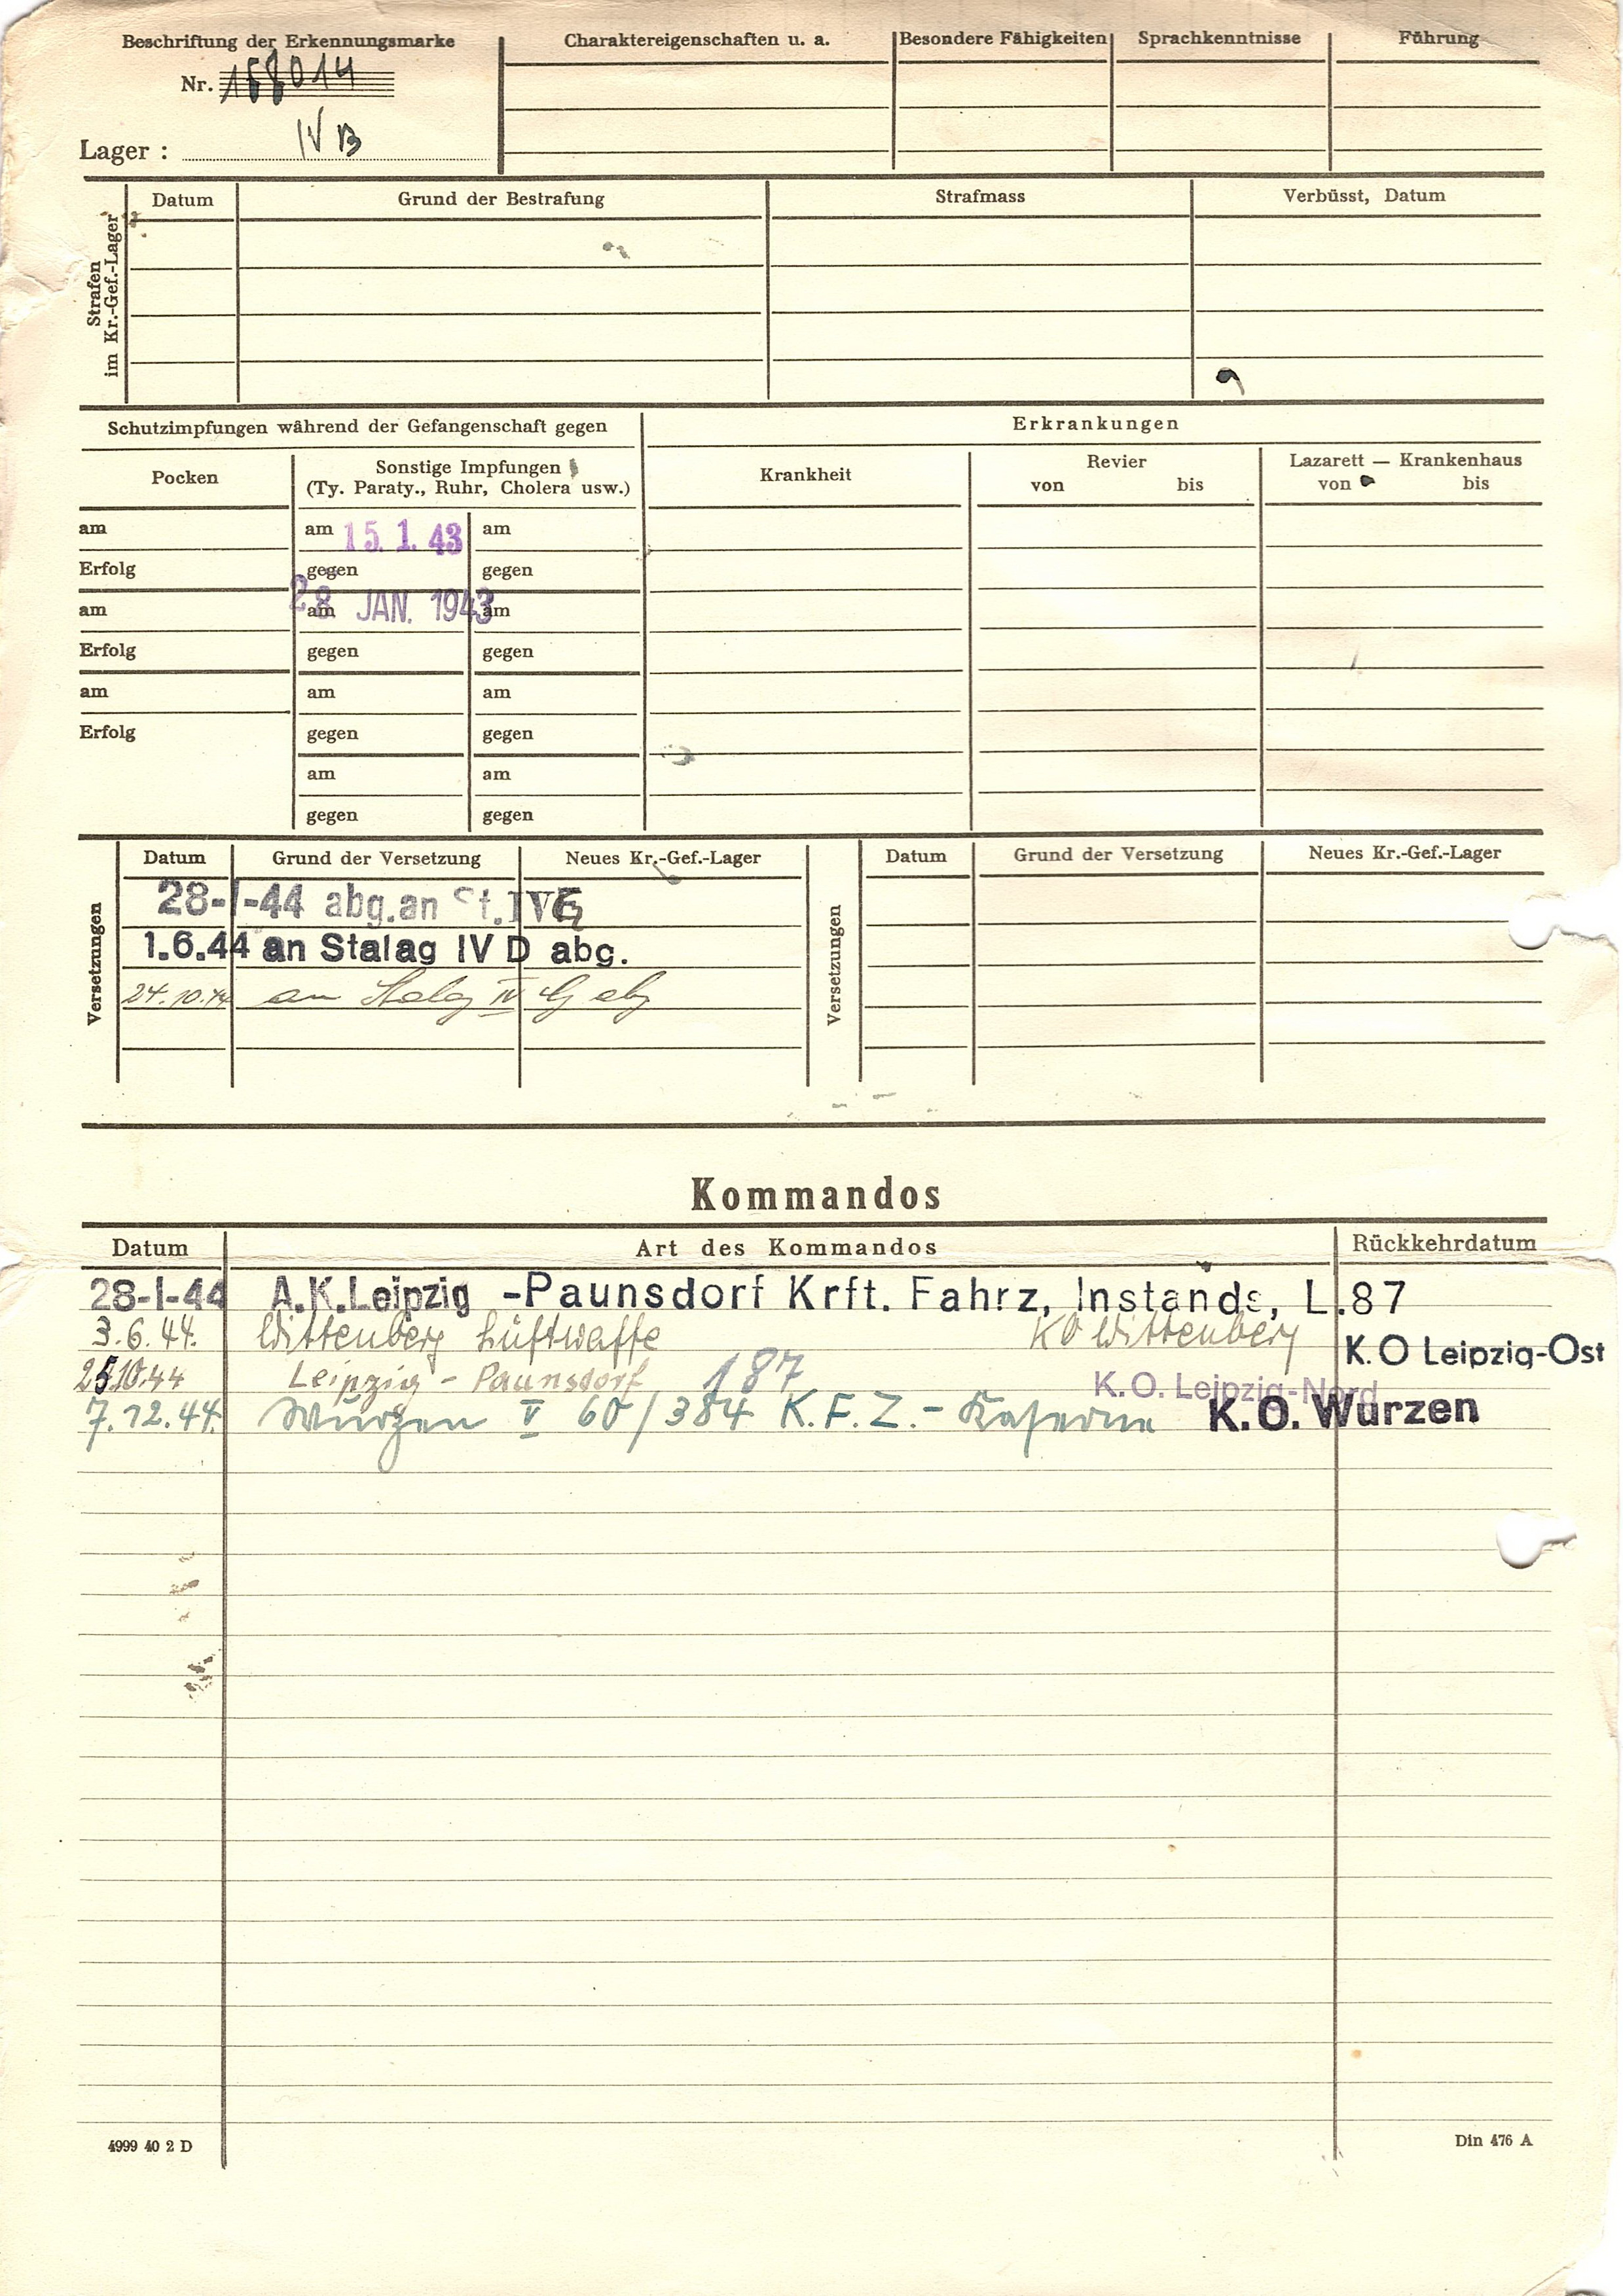 Beschriftung der Erkennungsmarke
Nr. 158014
Lager : IV B
Charaktereigenschaften u. a.
Besondere Fähigkeiten
Sprachkenntnisse
Führung
Strafen
im Kr.-Gef.-Lager
Datum
Grund der Bestrafung
Strafmass
Verbüsst, Datum
Schutzimpfungen während der Gefangenschaft gegen
Erkrankungen
Pocken
Sonstige Impfungen
(Ty. Paraty., Ruhr, Cholera usw.)
Krankheit
Revier
von bis
Lazarett — Krankenhaus
von bis
am am 15. 1. 43 am
Erfolg gegen gegen
am am 28 JAN. 1943 am
Erfolg gegen gegen
am am am
Erfolg gegen gegen
am am
gegen gegen
Versetzungen
Datum Grund der Versetzung Neues Kr.-Gef.-Lager
28-I-44 abg.an St.IVG
1.6.44 an Stalag IV D abg.
24.10.44 an Stalag IV G abg
Versetzungen
Datum Grund der Versetzung Neues Kr.-Gef.-Lager
Kommandos
Datum Art des Kommandos Rückkehrdatum
28-I-44 A.K.Leipzig -Paunsdorf Krft. Fahrz, Instands, L.87
3.6.44. Wittenberg Luftwaffe KO Wittenberg K.O Leipzig-Ost
25.10.44 Leipzig - Paunsdorf 187 K.O. Leipzig-Nord
7.12.44. Wurzen V 60/384 K.F.Z.- Kaserne K.O. Wurzen
4999 40 2 D
Din 476 A